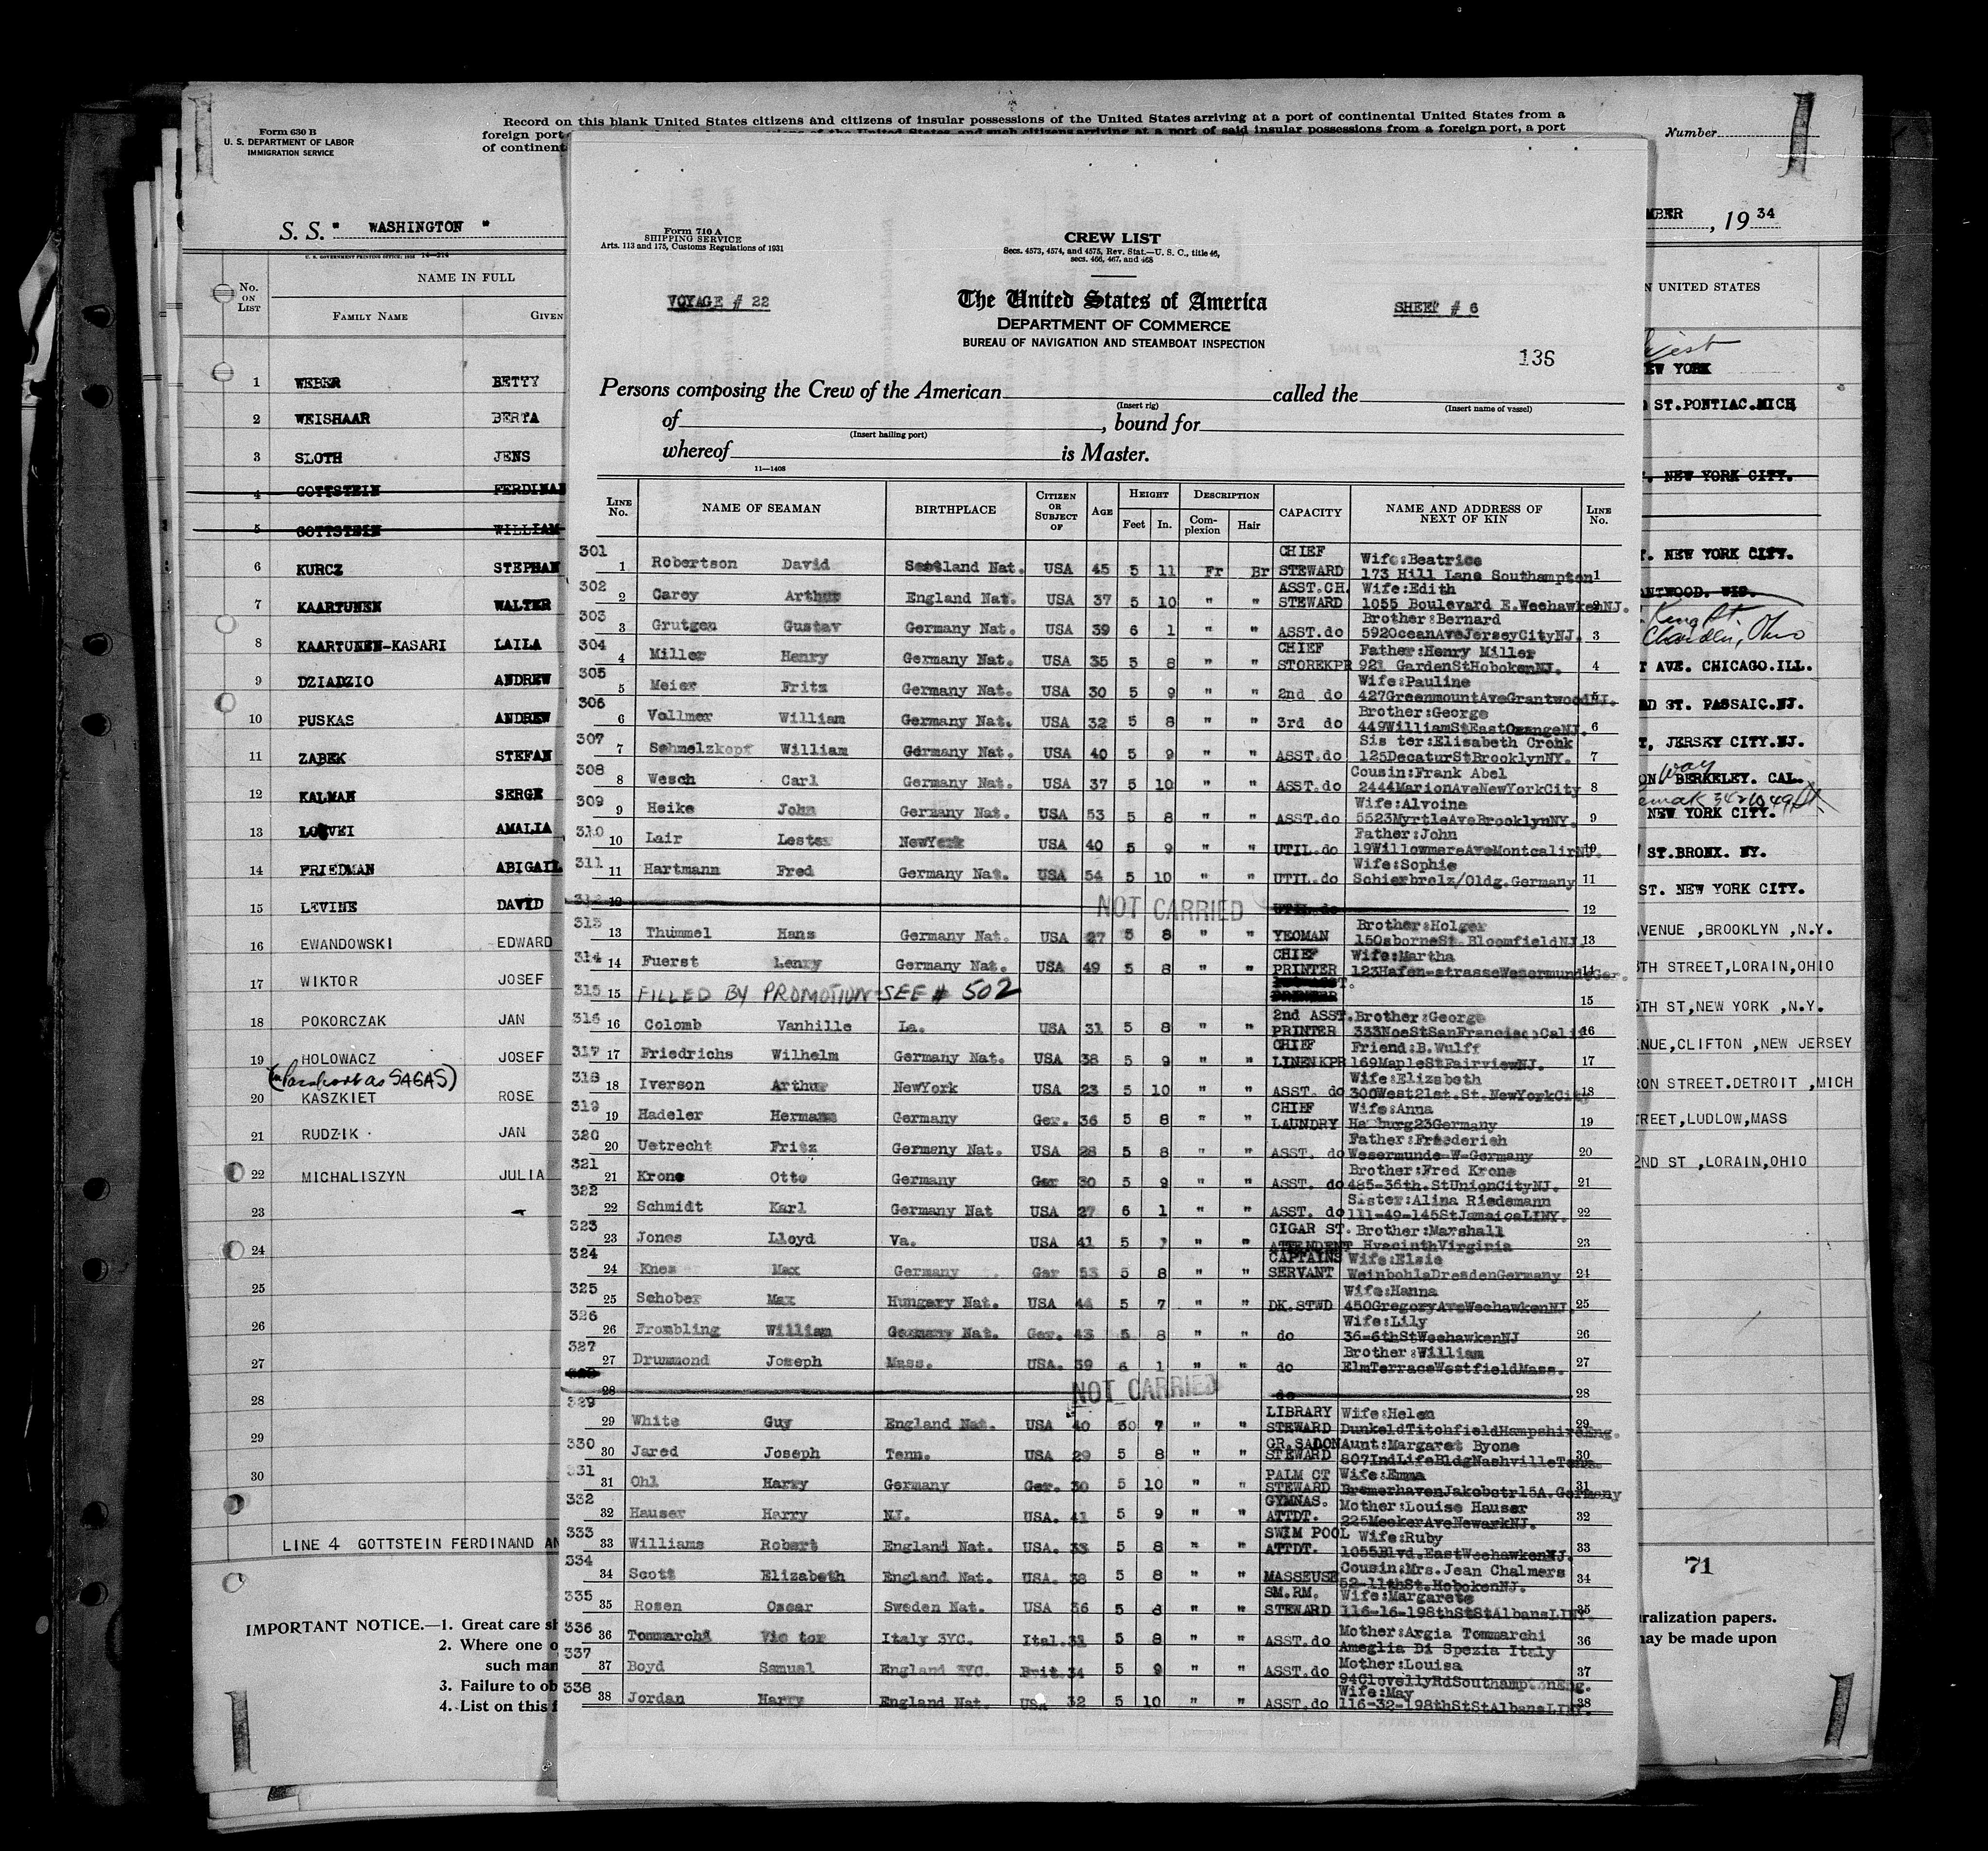 Form 630 B
U. S. DEPARTMENT OF LABOR
IMMIGRATION SERVICE
Record on this blank United States citizens and citizens of insular possessions of the United States arriving at a port of continental United States from a
foreign port
of continent
Number
S. S. " WASHINGTON "
MBER , 19 34
U. S. GOVERNMENT PRINTING OFFICE: 1932 14—214
No. ON LIST
NAME IN FULL
FAMILY NAME GIVEN
N UNITED STATES
1 WEBER BETTY
EW YORK
2 WEISHAAR BERTA
ST.PONTIAC.MICH
3 SLOTH JENS
4 GOTTSTEIN FERDINAN
. NEW YORK CITY.
5 GOTTSTEIN WILLIAM
6 KURCZ STEPHAN
. NEW YORK CITY.
7 KAARTUNEN WALTER
ANTWOOD. WIS.
8 KAARTUNEN-KASARI LAILA
King St.
Chandler, Ohio
T AVE. CHICAGO.ILL.
9 DZIADZIO ANDREW
D ST. PASSAIC.NJ.
10 PUSKAS ANDREW
, JERSEY CITY.NJ.
11 ZABEK STEFAN
Way
ON BERKELEY. CAL.
12 KALMAN SERGE
NEW YORK CITY.
13 AMALIA
ST.BRONX. NY.
14 FRIEDMAN ABIGAIL
ST. NEW YORK CITY.
15 LEVINE DAVID
AVENUE ,BROOKLYN ,N.Y.
16 EWANDOWSKI EDWARD
5TH STREET,LORAIN,OHIO
17 WIKTOR JOSEF
5TH ST,NEW YORK ,N.Y.
18 POKORCZAK JAN
NUE,CLIFTON ,NEW JERSEY
19 HOLOWACZ JOSEF
(in Passport as SAGAS)
RON STREET.DETROIT ,MICH
20 KASZKIET ROSE
TREET,LUDLOW,MASS
21 RUDZIK JAN
2ND ST ,LORAIN,OHIO
22 MICHALISZYN JULIA
23
24
25
26
27
28
29
30
LINE 4 GOTTSTEIN FERDINAND AN
71
IMPORTANT NOTICE.—1. Great care sh
2. Where one o
such man
3. Failure to ob
4. List on this f
ralization papers.
may be made upon
Form 710 A
SHIPPING SERVICE
Arts. 113 and 175, Customs Regulations of 1931
CREW LIST
Secs. 4573, 4574, and 4575, Rev. Stat.—U. S. C., title 46,
secs. 466, 467, and 468
VOYAGE # 22
The United States of America
SHEET # 6
DEPARTMENT OF COMMERCE
BUREAU OF NAVIGATION AND STEAMBOAT INSPECTION
136
Persons composing the Crew of the American called the
(Insert rig) (Insert name of vessel)
of , bound for
(Insert hailing port)
whereof is Master.
11—1408
LINE No. NAME OF SEAMAN BIRTHPLACE CITIZEN OR SUBJECT OF AGE HEIGHT Feet In. DESCRIPTION Complexion Hair CAPACITY NAME AND ADDRESS OF NEXT OF KIN LINE No.
301 CHIEF Wife:Beatrice
1 Robertson David Scotland Nat. USA 45 5 11 Fr Br STEWARD 173 Hill Lane Southampton 1
302 ASST.CH. Wife:Edith
2 Carey Arthur England Nat. USA 37 5 10 " " STEWARD 1055 Boulevard E.WeehawkenNJ. 2
303 Brother:Bernard
3 Grutgen Gustav Germany Nat. USA 39 6 1 " " ASST.do 592OceanAveJerseyCityNJ. 3
304 CHIEF Father:Henry Miller
4 Miller Henry Germany Nat. USA 35 5 8 " " STOREKPR 921 GardenStHobokenNJ. 4
305 Wife:Pauline
5 Meier Fritz Germany Nat. USA 30 5 9 " " 2nd do 427GreenmountAveGrantwoodNJ. 5
306 Brother:George
6 Vollmer William Germany Nat. USA 32 5 8 " " 3rd do 449WilliamStEastOrangeNJ. 6
307 Sis ter:Elisabeth Cronk
7 Schmelzkopf William Germany Nat. USA 40 5 9 " " ASST.do 125DecaturStBrooklynNY. 7
308 Cousin:Frank Abel
8 Wesch Carl Germany Nat. USA 37 5 10 " " ASST.do 2444MarionAveNewYorkCity 8
309 Wife:Alvoine
9 Heike John Germany Nat. USA 53 5 8 " " ASST.do 5523MyrtleAveBrooklynNY. 9
310 Father:John
10 Lair Lester NewYork USA 40 5 9 " " UTIL.do 19WillowmereAveMontcalirNJ. 10
311 Wife:Sophie
11 Hartmann Fred Germany Nat. USA 54 5 10 " " UTIL.do Schierbrolz/Oldg.Germany 11
312 12 NOT CARRIED UTIL.do 12
313 Brother:Holger
13 Thummel Hans Germany Nat. USA 27 5 8 " " YEOMAN 15OsborneSt.BloomfieldNJ. 13
314 CHIEF Wife:Martha
14 Fuerst Lenry Germany Nat. USA 49 5 8 " " PRINTER 123Hafen-strasseWesermundeGer. 14
315 15 FILLED BY PROMOTION-SEE # 502 15
316 2nd ASST. Brother:George
16 Colomb Vanhille La. USA 31 5 8 " " PRINTER 333NoeStSanFrancisco;Calif 16
317 CHIEF Friend:B.Wulff
17 Friedrichs Wilhelm Germany Nat. USA 38 5 9 " " LINENKPR 169MapleStFairviewNJ. 17
318 Wife:Elizabeth
18 Iverson Arthur NewYork USA 23 5 10 " " ASST. do 300West21st.St.NewYorkCity 18
319 CHIEF Wife:Anna
19 Hadeler Hermann Germany Ger. 36 5 8 " " LAUNDRY Hamburg23Germany 19
320 Father:Friederich
20 Uetrecht Fritz Germany Nat. USA 28 5 8 " " ASST. do Wesermunde-W-Germany 20
321 Brother:Fred Krone
21 Krone Otto Germany Ger 30 5 9 " " ASST. do 485-36th.StUnionCityNJ. 21
322 Sister:Alina Riedemann
22 Schmidt Karl Germany Nat USA 27 6 1 " " ASST. do 111-49-145StJamaicaLINY. 22
323 CIGAR ST. Brother:Marshall
23 Jones Lloyd Va. USA 41 5 7 " " ATTENDENT HyacinthVirginia 23
324 CAPTAINS Wife:Elsie
24 Knes Max Germany Ger 53 5 8 " " SERVANT WeinbohlaDresdenGermany 24
325 Wife:Hanna
25 Schober Max Hungary Nat. USA 44 5 7 " " DK.STWD 450GregoryAveWeehawkenNJ. 25
326 Wife:Lily
26 Frombling William Germany Nat. Ger. 43 5 8 " " do 36-6thStWeehawkenNJ 26
327 Brother:William
27 Drummond Joseph Mass. USA. 39 6 1 " " do ElmTerraceWestfieldMass. 27
28 NOT CARRIED do 28
329 LIBRARY Wife:Helen
29 White Guy England Nat. USA 40 50 7 " " STEWARD DunkeldTitchfieldHampshireEng. 29
330 GR.SADON Aunt:Margaret Byone
30 Jared Joseph Tenn. USA 29 5 8 " " STEWARD 807IndLifeBldgNashvilleTenn. 30
331 PALM CT Wife:Emma
31 Ohl Harry Germany Ger. 30 5 10 " " STEWARD BremerhavenJakobstr15A.Germany 31
332 GYMNAS. Mother:Louise Hauser
32 Hauser Harry NJ. USA. 41 5 9 " " ATTDT. 225MeekerAveNewarkNJ. 32
333 SWIM POOL Wife:Ruby
33 Williams Robert England Nat. USA. 33 5 8 " " ATTDT. 1055Blvd.EastWeehawkenNJ. 33
334 Cousin:Mrs.Jean Chalmers
34 Scott Elizabeth England Nat. USA. 38 5 8 " " MASSEUSE 52-11thSt.HobokenNJ. 34
335 SM.RM. Wife:Margarete
35 Rosen Oscar Sweden Nat. USA 36 5 8 " " STEWARD 116-16-198thStStAlbansLINY. 35
336 Mother:Argia Tommarchi
36 Tommarchi Vic tor Italy 3YC. Ital. 31 5 8 " " ASST.do Ameglia Di Spezia Italy 36
337 Mother:Louisa
37 Boyd Samual England 3YC. Brit. 34 5 9 " " ASST.do 94ClovellyRdSouthamptonEng. 37
338 Wife:May
38 Jordan Harry England Nat. USA 32 5 10 " " ASST.do 116-32-198thStStAlbansLINY. 38